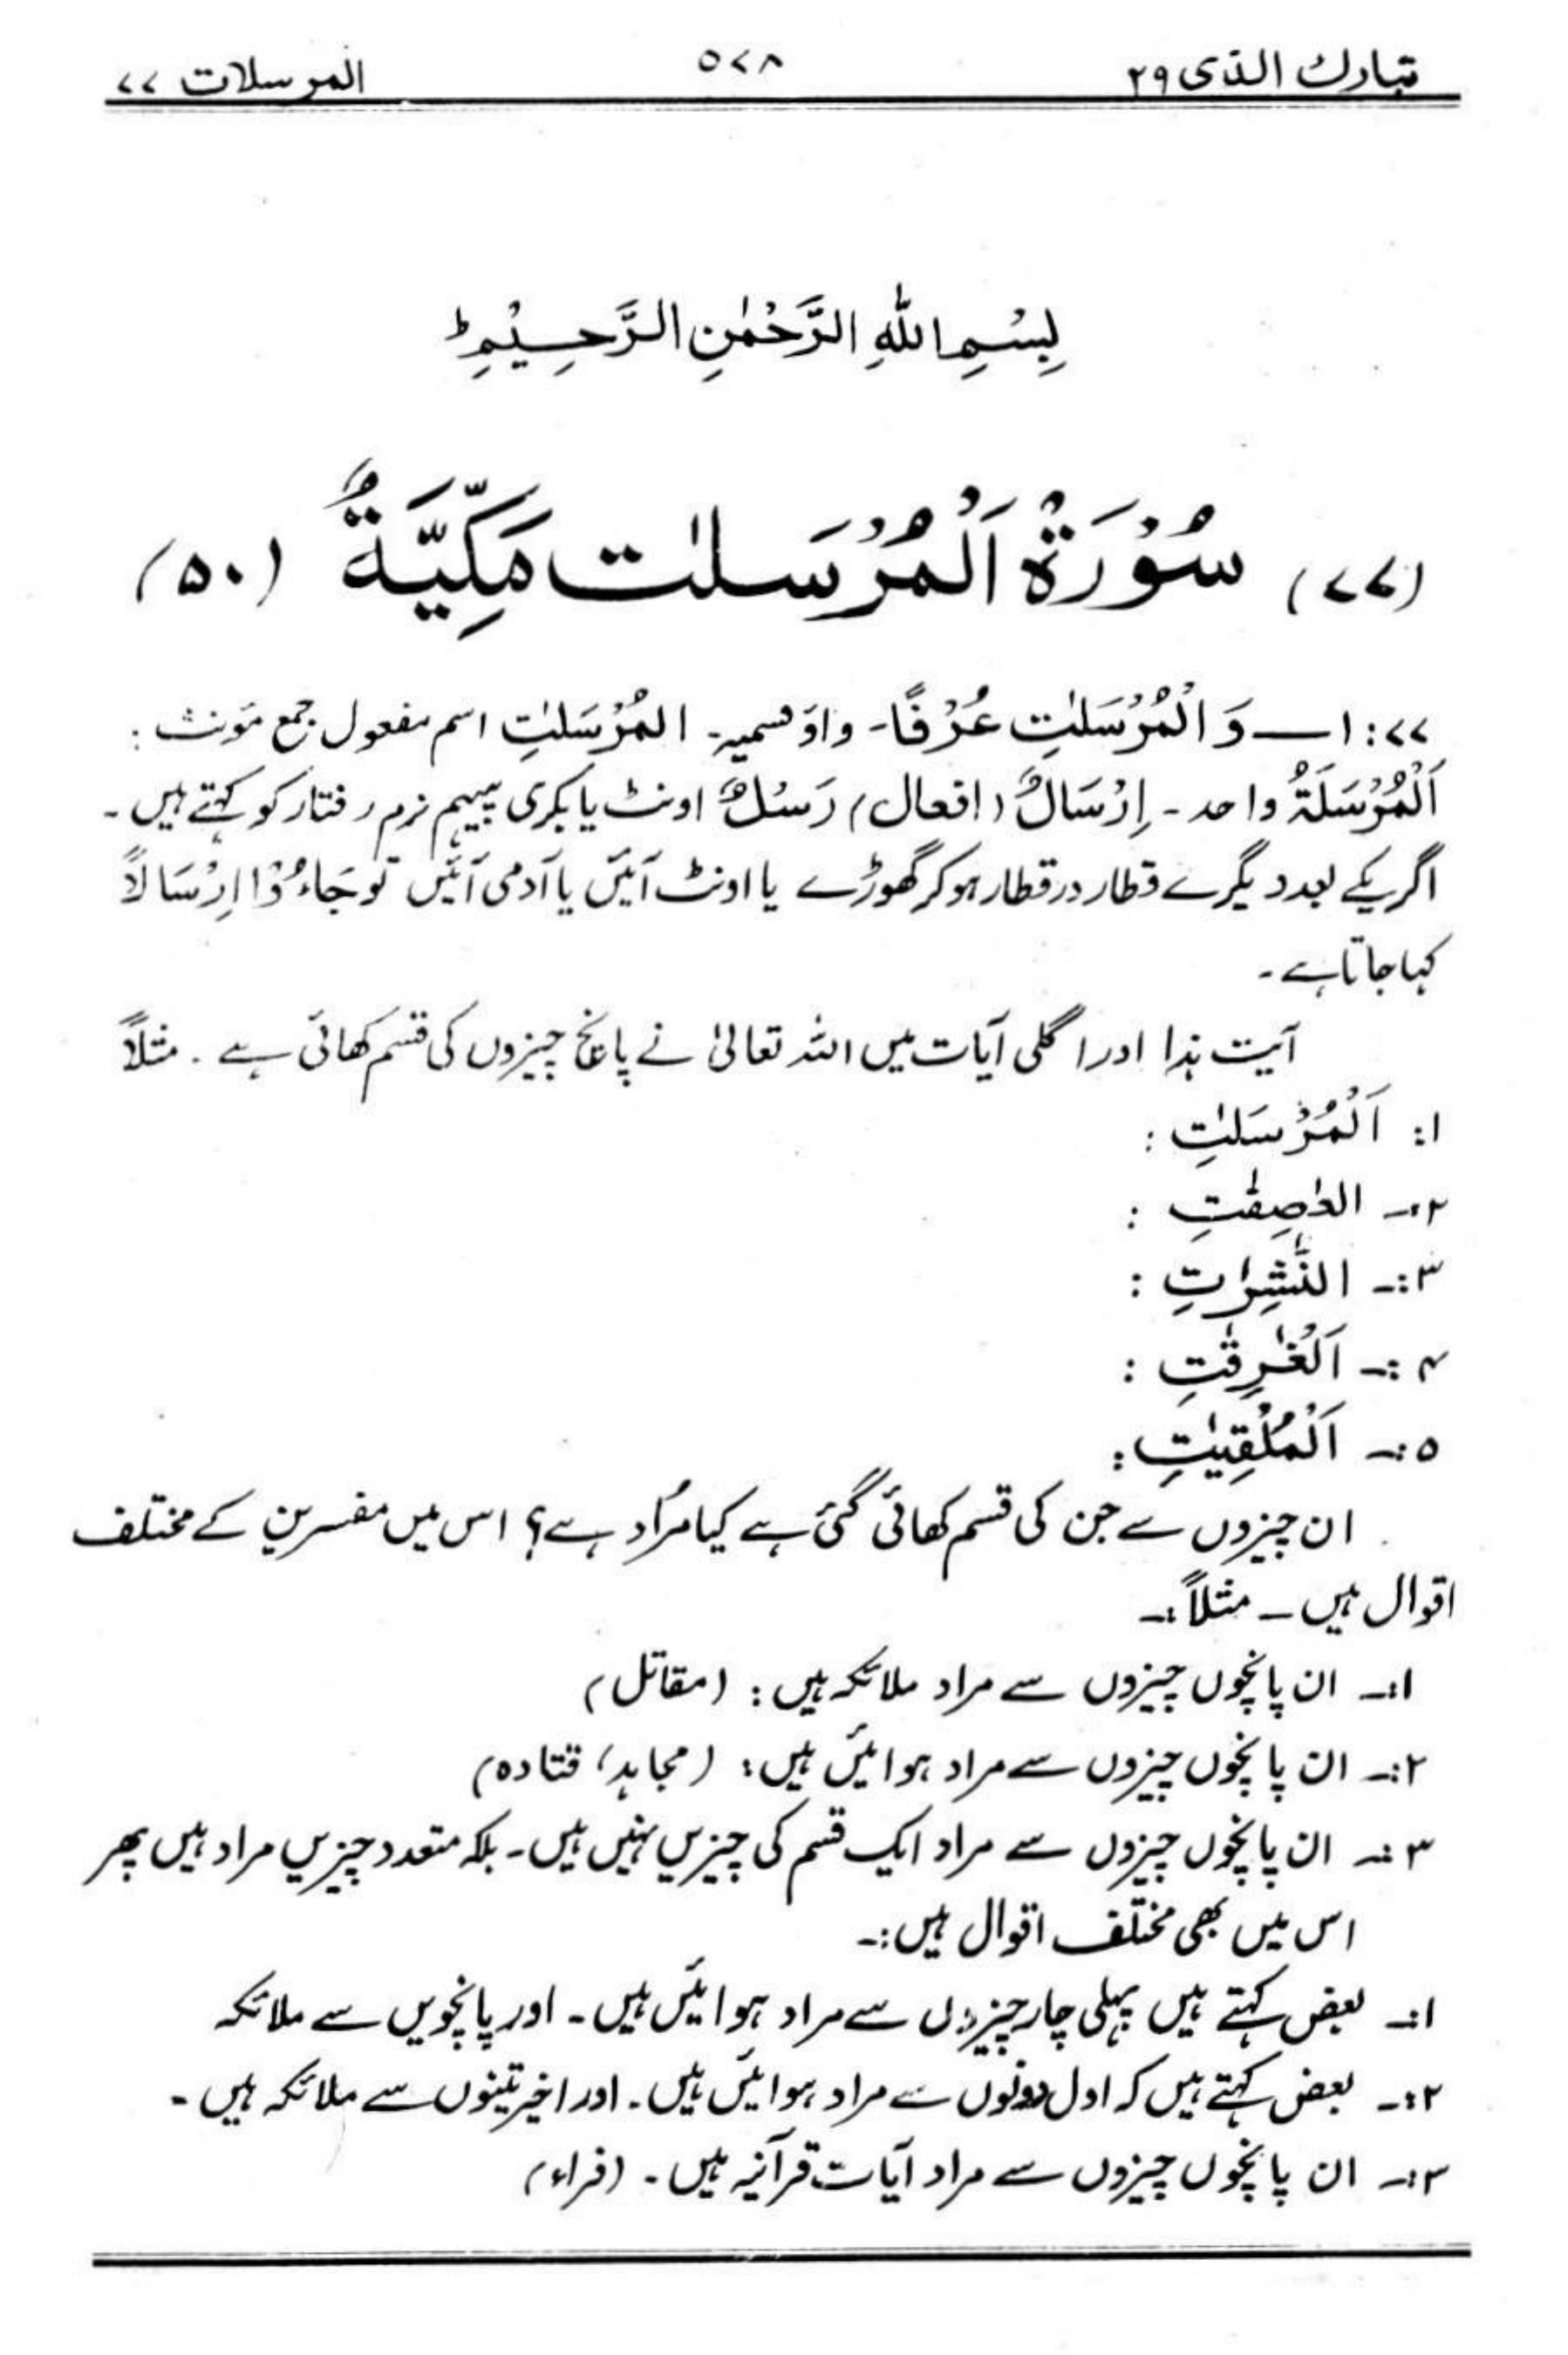 تبارك الذی ۲۹
۵۷۸
المرسلات ۷۷
بِسْمِ اللّٰهِ الرَّحْمٰنِ الرَّحِيْمِ ؕ
(۷۷) سُوْرَةُ اَلْمُرْسَلٰت مَكِّيَّةٌ (۵۰)
۷۷: ۱ ــ وَ الْمُرْسَلٰتِ عُرْفًا۔ واؤ قسمیہ۔ المُرْسَلٰتِ اسم مفعول جمع مؤنث :
اَلْمُرْسَلَةُ واحد ۔ اِرْسَالٌ (افعال) رَسْلٌ اونٹ یا بکری پیہم نرم رفتار کو کہتے ہیں ۔
اگر یکے بعد دیگرے قطار در قطار ہو کر گھوڑے یا اونٹ آئیں یا آدمی آئیں تو جَاءُوْا اِرْسَالًا
کہا جاتا ہے ۔
آیت ہذا اور اگلی آیات میں اللہ تعالیٰ نے پانچ چیزوں کی قسم کھائی ہے ۔ مثلاً
۱: اَلْمُرْسَلٰتِ :
۲:۔ العٰصِفٰتِ :
۳:۔ النّٰشِرٰتِ :
۴:۔ اَلْفٰرِقٰتِ :
۵:۔ اَلْمُلْقِيٰتِ :
ان چیزوں سے جن کی قسم کھائی گئی ہے کیا مُراد ہے؟ اس میں مفسرین کے مختلف
اقوال ہیں ۔ مثلاً :۔
۱:۔ ان پانچوں چیزوں سے مراد ملائکہ ہیں : (مقاتل)
۲:۔ ان پانچوں چیزوں سے مراد ہوائیں ہیں : (مجاہد، قتادہ)
۳:۔ ان پانچوں چیزوں سے مراد ایک قسم کی چیزیں نہیں ہیں ۔ بلکہ متعدد چیزیں مراد ہیں پھر
اس میں بھی مختلف اقوال ہیں :۔
۱:۔ بعض کہتے ہیں پہلی چار چیزوں سے مراد ہوائیں ہیں ۔ اور پانچویں سے ملائکہ
۲:۔ بعض کہتے ہیں کہ اول دونوں سے مراد ہوائیں ہیں ۔ اور اخیر تینوں سے ملائکہ ہیں ۔
۳:۔ ان پانچوں چیزوں سے مراد آیات قرآنیہ ہیں ۔ (فراء)